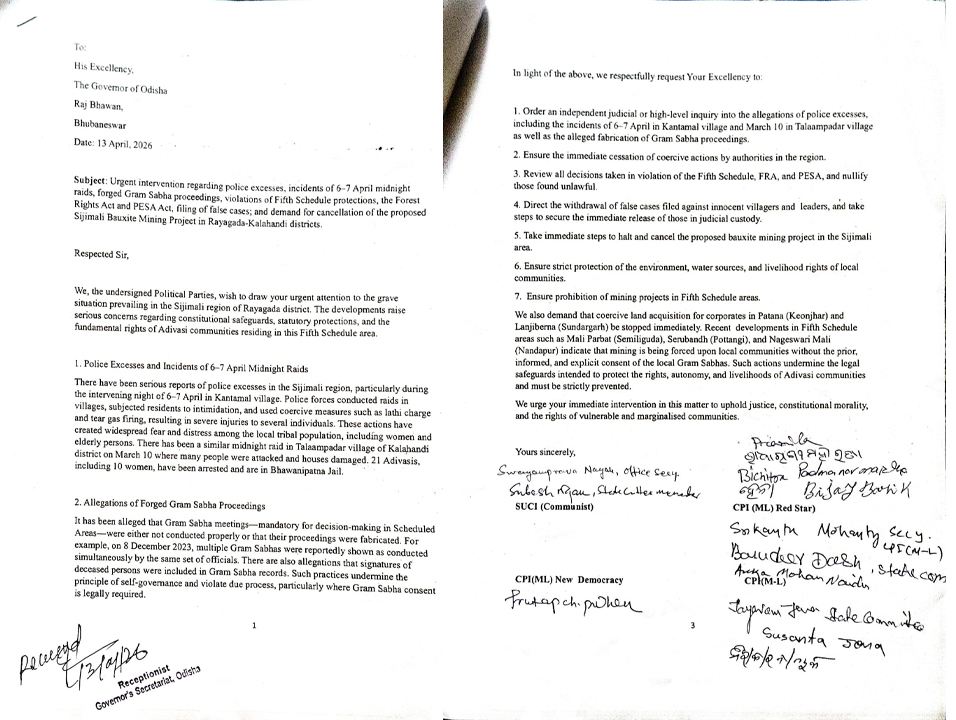 To:
His Excellency,
The Governor of Odisha
Raj Bhawan,
Bhubaneswar
Date: 13 April, 2026
Subject: Urgent intervention regarding police excesses, incidents of 6–7 April midnight
raids, forged Gram Sabha proceedings, violations of Fifth Schedule protections, the Forest
Rights Act and PESA Act, filing of false cases; and demand for cancellation of the proposed
Sijimali Bauxite Mining Project in Rayagada-Kalahandi districts.
Respected Sir,
We, the undersigned Political Parties, wish to draw your urgent attention to the grave
situation prevailing in the Sijimali region of Rayagada district. The developments raise
serious concerns regarding constitutional safeguards, statutory protections, and the
fundamental rights of Adivasi communities residing in this Fifth Schedule area.
1. Police Excesses and Incidents of 6–7 April Midnight Raids
There have been serious reports of police excesses in the Sijimali region, particularly during
the intervening night of 6–7 April in Kantamal village. Police forces conducted raids in
villages, subjected residents to intimidation, and used coercive measures such as lathi charge
and tear gas firing, resulting in severe injuries to several individuals. These actions have
created widespread fear and distress among the local tribal population, including women and
elderly persons. There has been a similar midnight raid in Talaampadar village of Kalahandi
district on March 10 where many people were attacked and houses damaged. 21 Adivasis,
including 10 women, have been arrested and are in Bhawanipatna Jail.
2. Allegations of Forged Gram Sabha Proceedings
It has been alleged that Gram Sabha meetings—mandatory for decision-making in Scheduled
Areas—were either not conducted properly or that their proceedings were fabricated. For
example, on 8 December 2023, multiple Gram Sabhas were reportedly shown as conducted
simultaneously by the same set of officials. There are also allegations that signatures of
deceased persons were included in Gram Sabha records. Such practices undermine the
principle of self-governance and violate due process, particularly where Gram Sabha consent
is legally required.
1
Received
13/04/26
Receptionist
Governor's Secretariat, Odisha
In light of the above, we respectfully request Your Excellency to:
1. Order an independent judicial or high-level inquiry into the allegations of police excesses,
including the incidents of 6–7 April in Kantamal village and March 10 in Talaampadar village
as well as the alleged fabrication of Gram Sabha proceedings.
2. Ensure the immediate cessation of coercive actions by authorities in the region.
3. Review all decisions taken in violation of the Fifth Schedule, FRA, and PESA, and nullify
those found unlawful.
4. Direct the withdrawal of false cases filed against innocent villagers and leaders, and take
steps to secure the immediate release of those in judicial custody.
5. Take immediate steps to halt and cancel the proposed bauxite mining project in the Sijimali
area.
6. Ensure strict protection of the environment, water sources, and livelihood rights of local
communities.
7. Ensure prohibition of mining projects in Fifth Schedule areas.
We also demand that coercive land acquisition for corporates in Patana (Keonjhar) and
Lanjiberna (Sundargarh) be stopped immediately. Recent developments in Fifth Schedule
areas such as Mali Parbat (Semiliguda), Serubandh (Pottangi), and Nageswari Mali
(Nandapur) indicate that mining is being forced upon local communities without the prior,
informed, and explicit consent of the local Gram Sabhas. Such actions undermine the legal
safeguards intended to protect the rights, autonomy, and livelihoods of Adivasi communities
and must be strictly prevented.
We urge your immediate intervention in this matter to uphold justice, constitutional morality,
and the rights of vulnerable and marginalised communities.
Yours sincerely,
Nayak, Office Secy.
SUCI (Communist)
Pramila
Bichitra
CPI (ML) Red Star)
CPI(ML) New Democracy
Srikanta Mohanty Secy.
CPI(M-L)
Dash, State com
Mohan Naidu
CPI(M-L)
State Committee
Susanta Jena
3